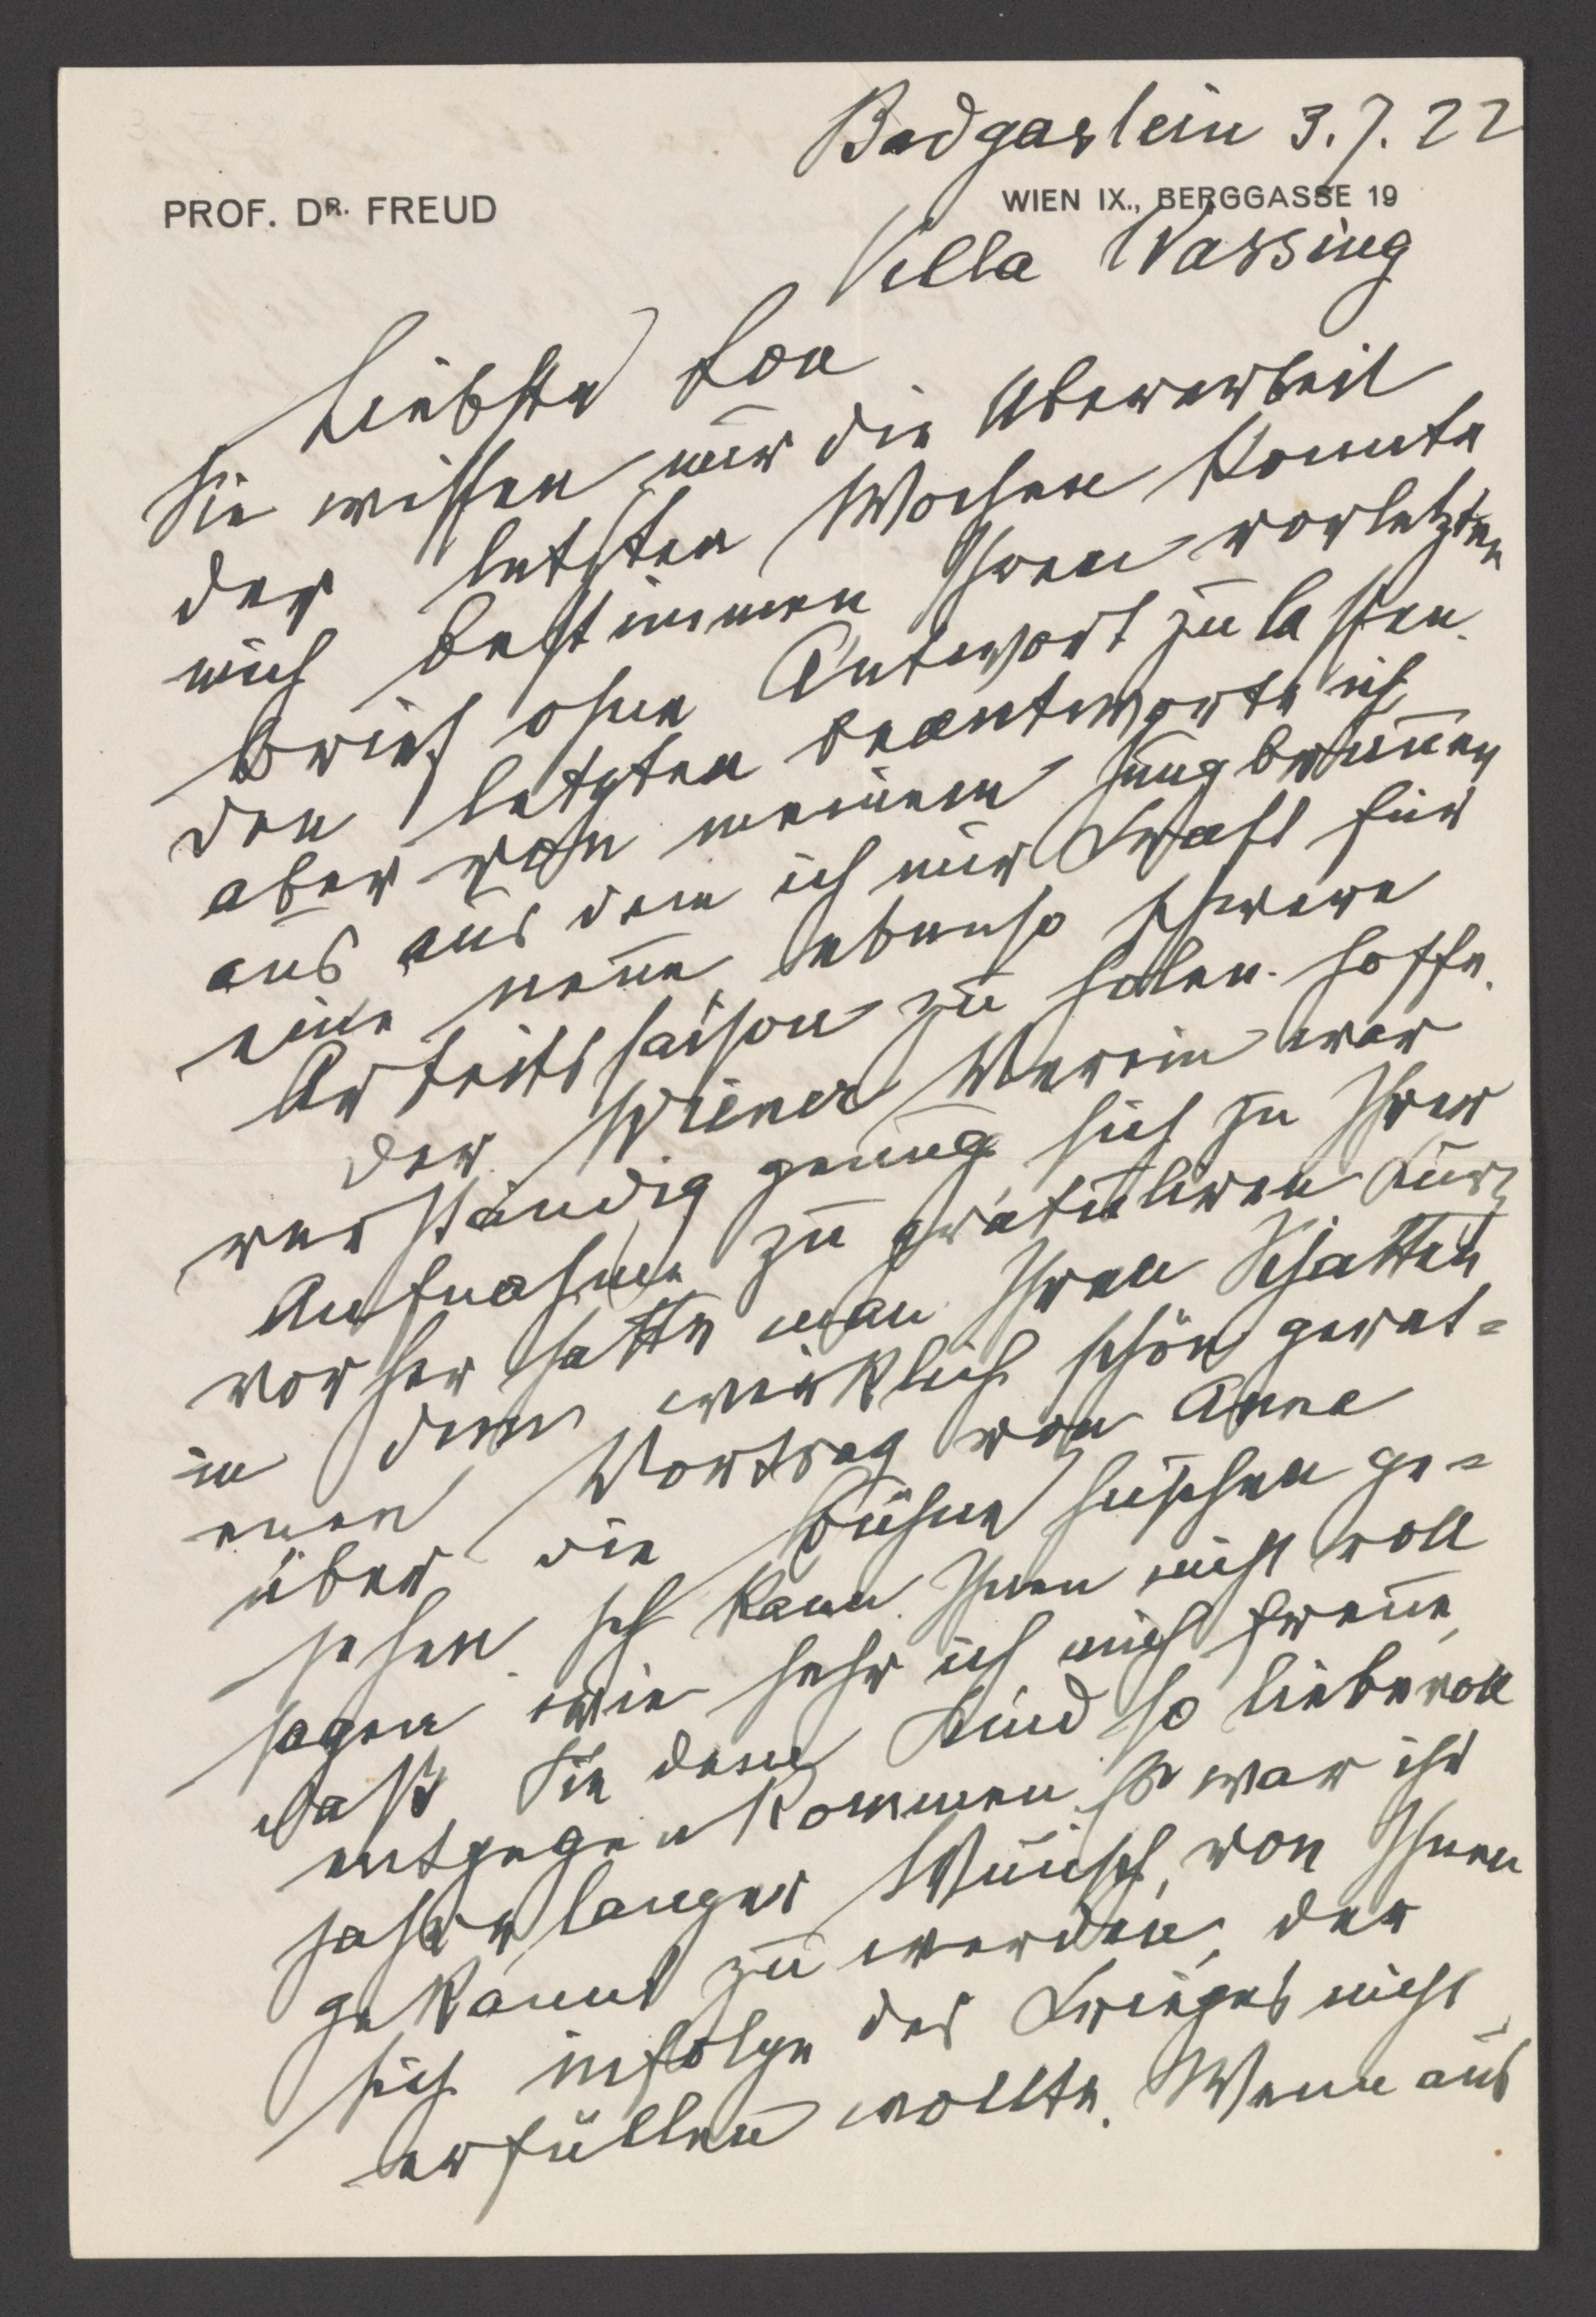 Badgastein 3.7.22
PROF. DR. FREUD
WIEN IX., BERGGASSE 19
Villa Wassing
Liebste Lou
Sie wissen, nur die Überarbeit
der letzten Wochen konnte
mich bestimmen Ihren vorletzten
Brief ohne Antwort zu lassen.
Den letzten beantworte ich
aber von meinem Jungbrunnen
aus, aus dem ich mir Kraft für
eine neue, ebenso schwere
Arbeitssaison zu holen hoffe.
Der Wiener Verein war
verständig genug sich zu Ihrer
Aufnahme zu gratuliren. Kurz
vorher hatte man Ihren Schatten
in dem wirklich schön gerat-
enen Vortrag von Anna
über die Bühne huschen ge-
sehen. Ich kann Ihnen nicht voll
sagen wie sehr ich mich freue,
daß Sie dem Kind so liebevoll
entgegenkommen. Es war ihr
jahrelanger Wunsch, von Ihnen
gekannt zu werden, der
sich infolge des Krieges nicht
erfüllen wollte. Wenn aus